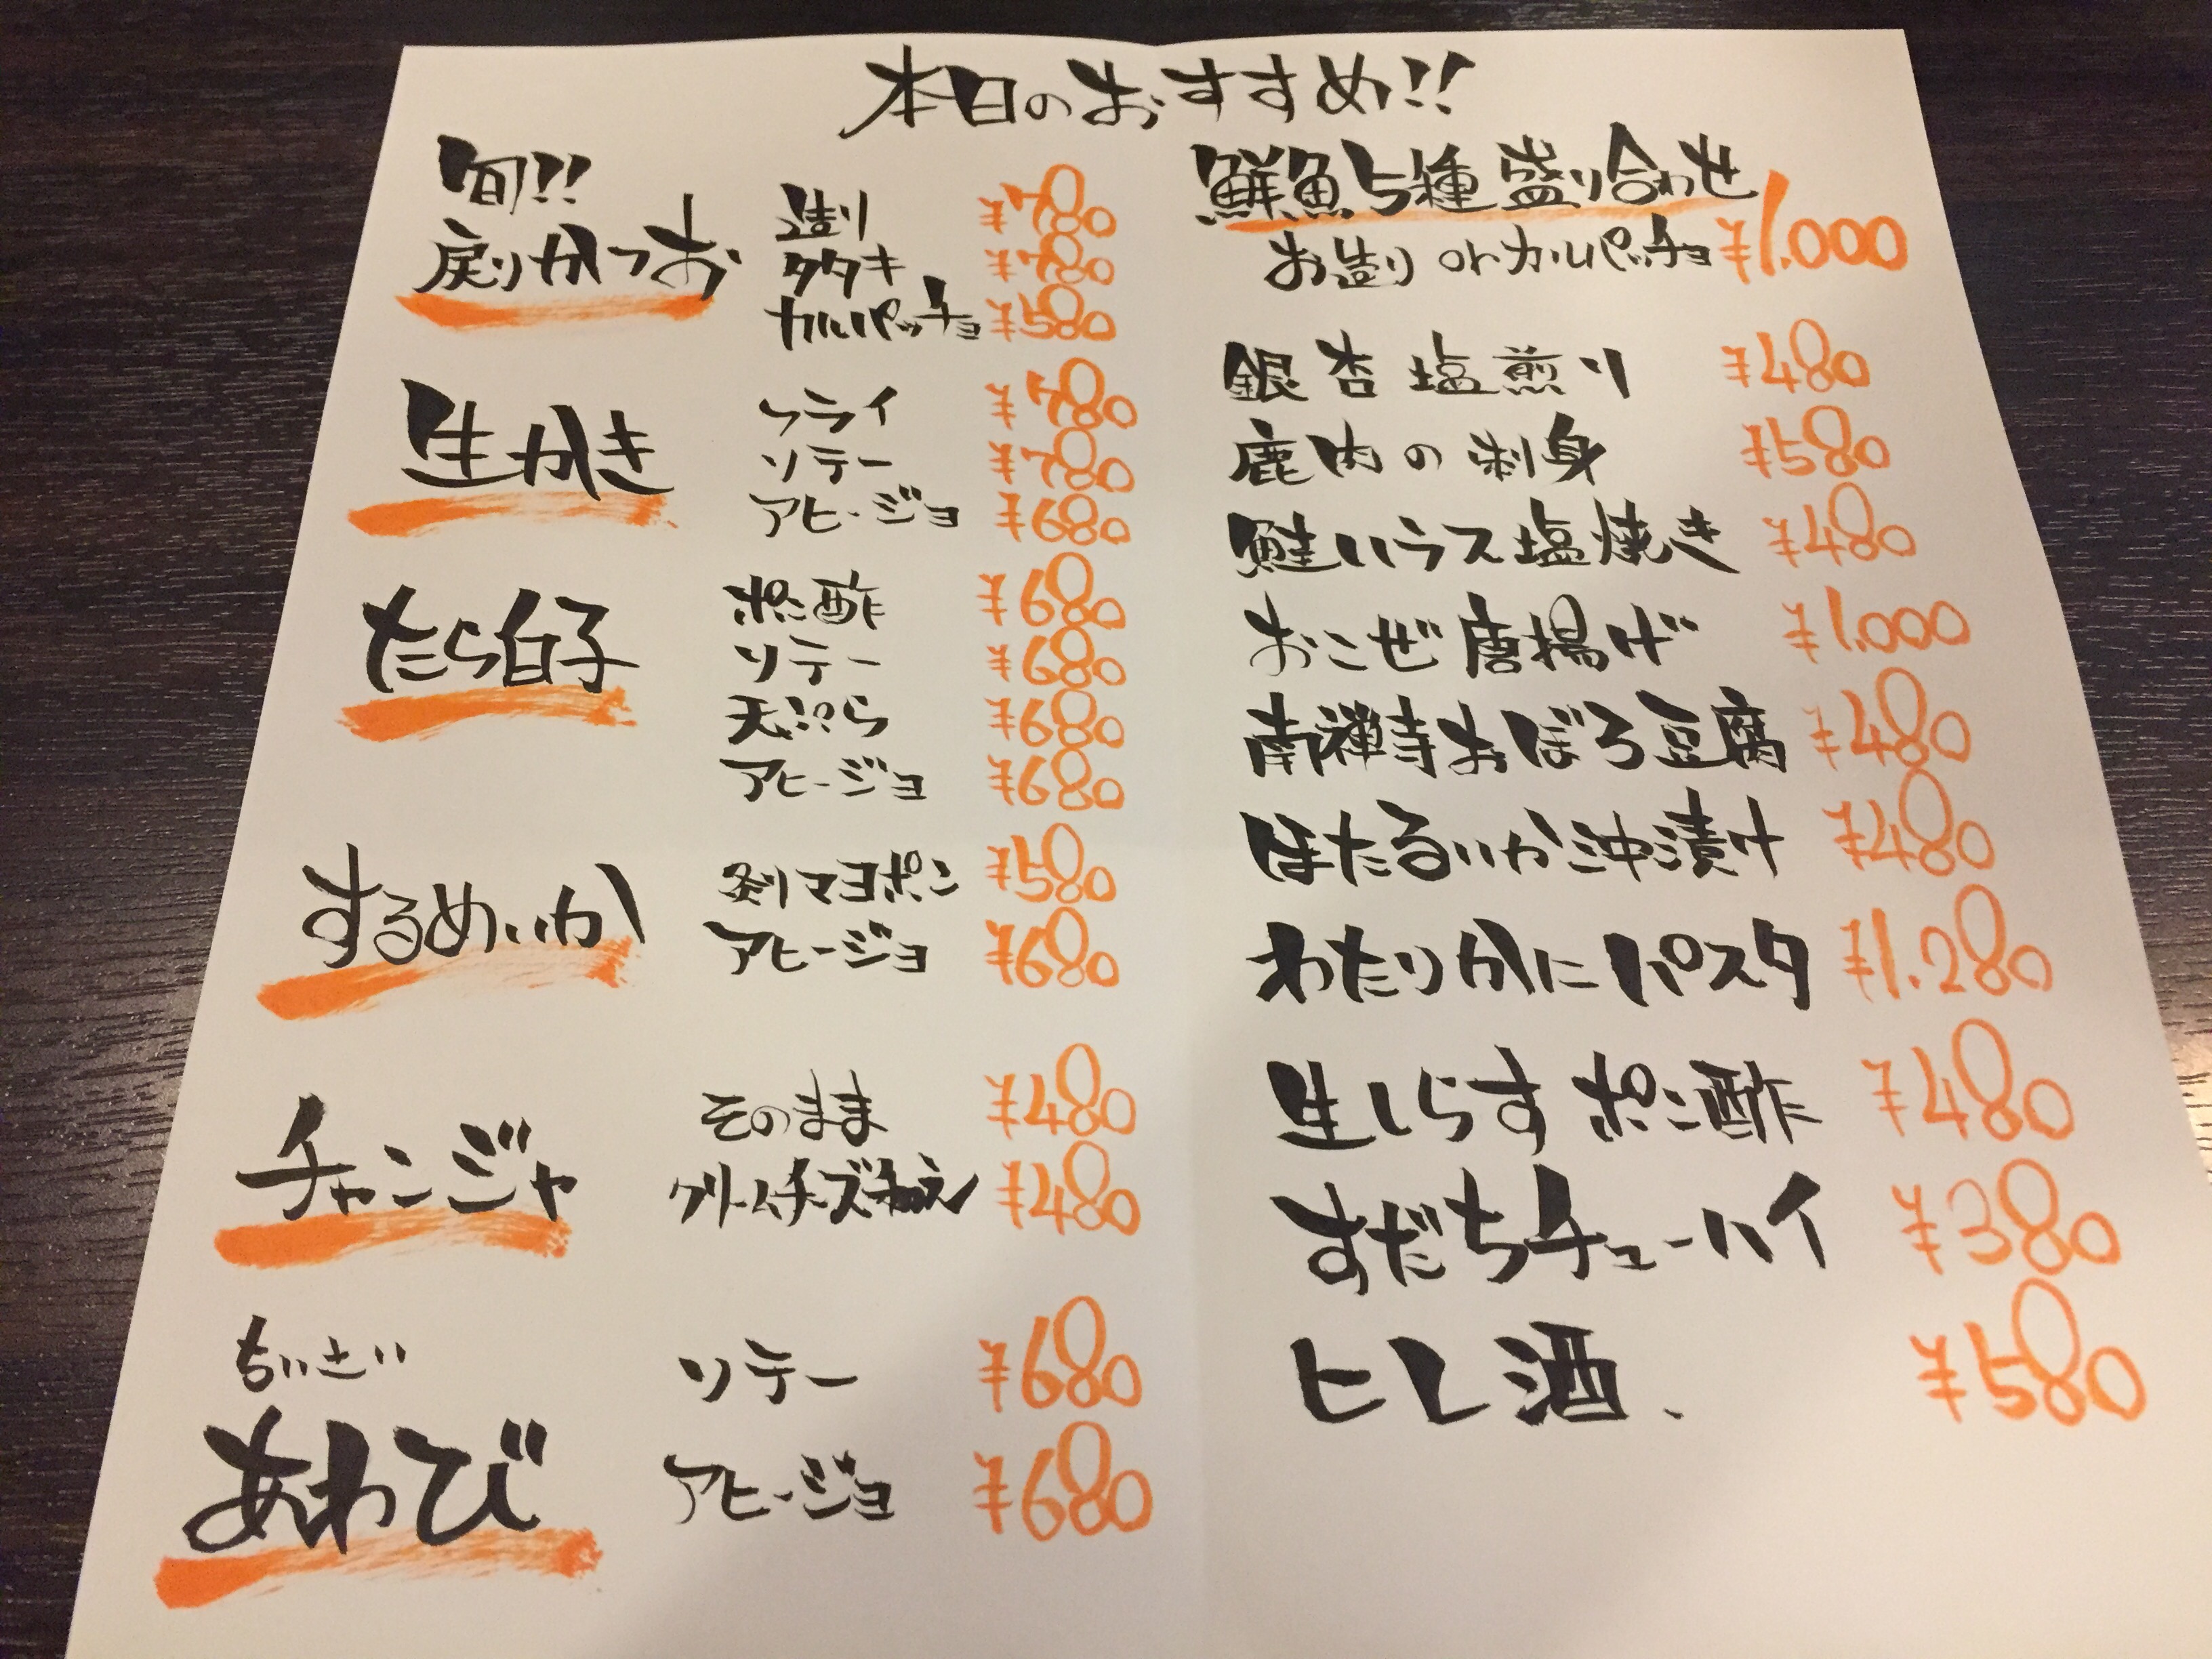 本日のおすすめ!!
旬!!
戻りかつお
造り ¥780
タタキ ¥780
カルパッチョ ¥580
生かき
フライ ¥780
ソテー ¥780
アヒージョ ¥680
たら白子
ポン酢 ¥680
ソテー ¥680
天ぷら ¥680
アヒージョ ¥680
するめいか
炙りマヨポン ¥580
アヒージョ ¥680
チャンジャ
そのまま ¥480
クリームチーズ和え ¥480
ちいさい
あわび
ソテー ¥680
アヒージョ ¥680
鮮魚5種盛り合わせ
お造り orカルパッチョ ¥1.000
銀杏塩煎り ¥480
鹿肉の刺身 ¥580
鮭ハラス塩焼き ¥480
おこぜ唐揚げ ¥1.000
南禅寺おぼろ豆腐 ¥480
ほたるいか沖漬け ¥480
わたりかにパスタ ¥1.280
生しらすポン酢 ¥480
すだちチューハイ ¥380
ヒレ酒 ¥580